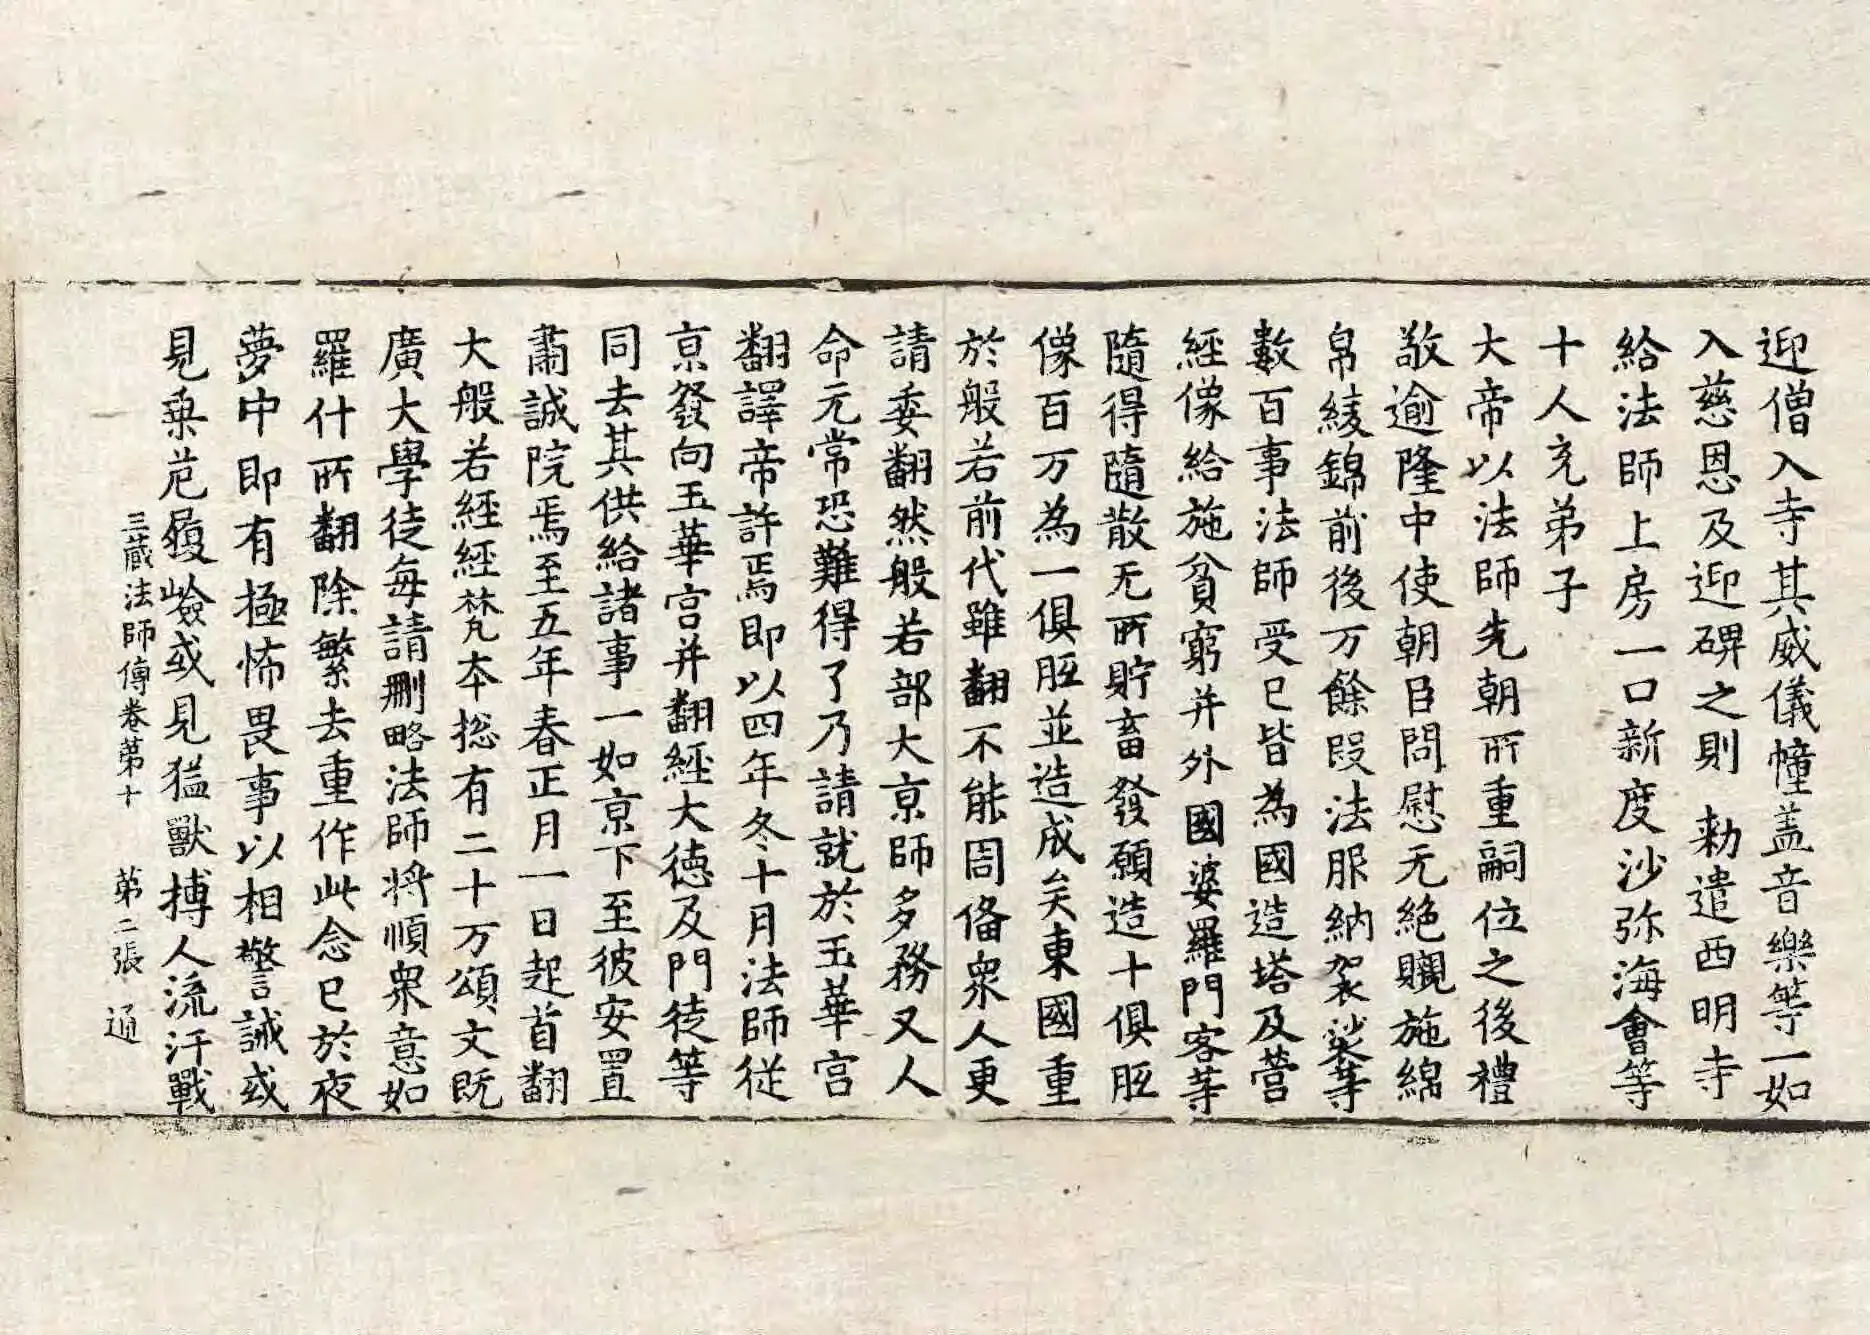 迎僧入寺其威儀幢盖音樂等一如
入慈恩及迎碑之則 勑遣西明寺
給法師上房一口新度沙弥海會等
十人充弟子
大帝以法師先朝所重嗣位之後禮
敬逾隆中使朝臣問慰无絶䞋施綿
帛綾錦前後万餘段法服納袈裟等
數百事法師受已皆為國造塔及營
經像給施貧窮并外國婆羅門客等
隨得隨散无所貯畜發願造十俱胝
像百万為一俱胝並造成矣東國重
於般若前代雖翻不能周俻衆人更
請委翻然般若部大京師多務又人
命无常恐難得了乃請就於玉華宫
翻譯帝許焉即以四年冬十月法師従
京發向玉華宫并翻經大德及門徒等
同去其供給諸事一如京下至彼安置
肅誠院焉至五年春正月一日起首翻
大般若經經梵夲捴有二十万頌文既
廣大學徒每請刪略法師将順衆意如
羅什所翻除繁去重作此念已於夜
夢中即有極怖畏事以相警誡或
見乗危履嶮或見猛獸搏人流汗戰
三蔵法師傳卷第十 第二張 通